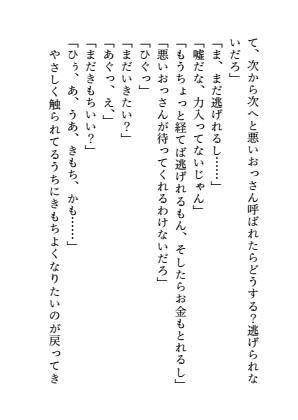 て、次から次へと悪いおっさん呼ばれたらどうする？逃げられな
いだろ」
「ま、まだ逃げれるし……」
「嘘だな、力入ってないじゃん」
「もうちょっと経てば逃げれるもん、そしたらお金もとれるし」
「悪いおっさんが待ってくれるわけないだろ」
「ひぐっ」
「まだいきたい？」
「あぐっ、え、」
「まだきもちいい？」
「ひぅ、あ、うあ、きもち、かも……」
やさしく触られてるうちにきもちよくなりたいのが戻ってき